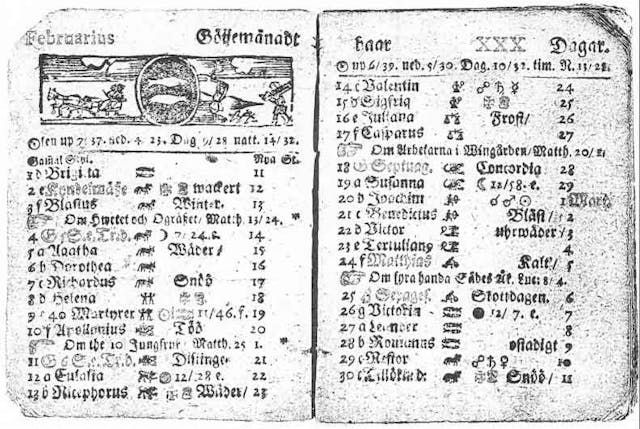 Februarius Götjemånadt
Solen up 7/37. ned. 4/23. Dag 9/28 natt. 14/32.
Gamal Styl. Nya St.
1 d Brigitta 11
2 e Kyndelmässe wackert 12
3 f Blasius Winter. 13
Om Hwetet och Ogräset/ Matth. 13/24.
4 G 5 e. Tr. D. 7/24. 14
5 a Agatha Wäder/ 15
6 b Dorothea 16
7 c Richardus Snöö 17
8 d Helena 18
9 e 40 Martyrer 11/46. f. 19
10 f Apollonius Töö 20
Om the 10 Jungfrur/ Matth. 25 1.
11 G 6 S. e. Tr. D. Distinge. 21
12 a Eulalia 12/28 e. 22
13 b Nicephorus Wäder/ 23
haar XXX Dagar.
up 6/39. ned. 5/30. Dag. 10/32. tim. N. 13/28.
14 c Valentin ☍ ♄ ☿ 24
15 d Sigfrid 25
16 e Juliana Frost/ 26
17 f Casparus 27
Om Arbetarna i Wingården/ Matth. 20/1.
18 G Septuag. Concordia 28
19 a Susanna ☾ 12/58. e. 29
20 b Joachim ☌ ♂ ☉ 1 Mart.
21 c Benedictus Blåst/ 2
22 d Victor uhrwäder/ 3
23 e Tertuliang 4
24 f Matthias Kalt/ 5
Om fyra handa Sädes Åk. Luc: 8/4.
25 G Sexages. Skottdagen. 6
26 g Victorin ● 12/7. e. 7
27 a Leander 8
28 b Romanus ostadigt 9
29 c Nestor ☍ ♄ ♀ 10
30 c Snöö/ 11